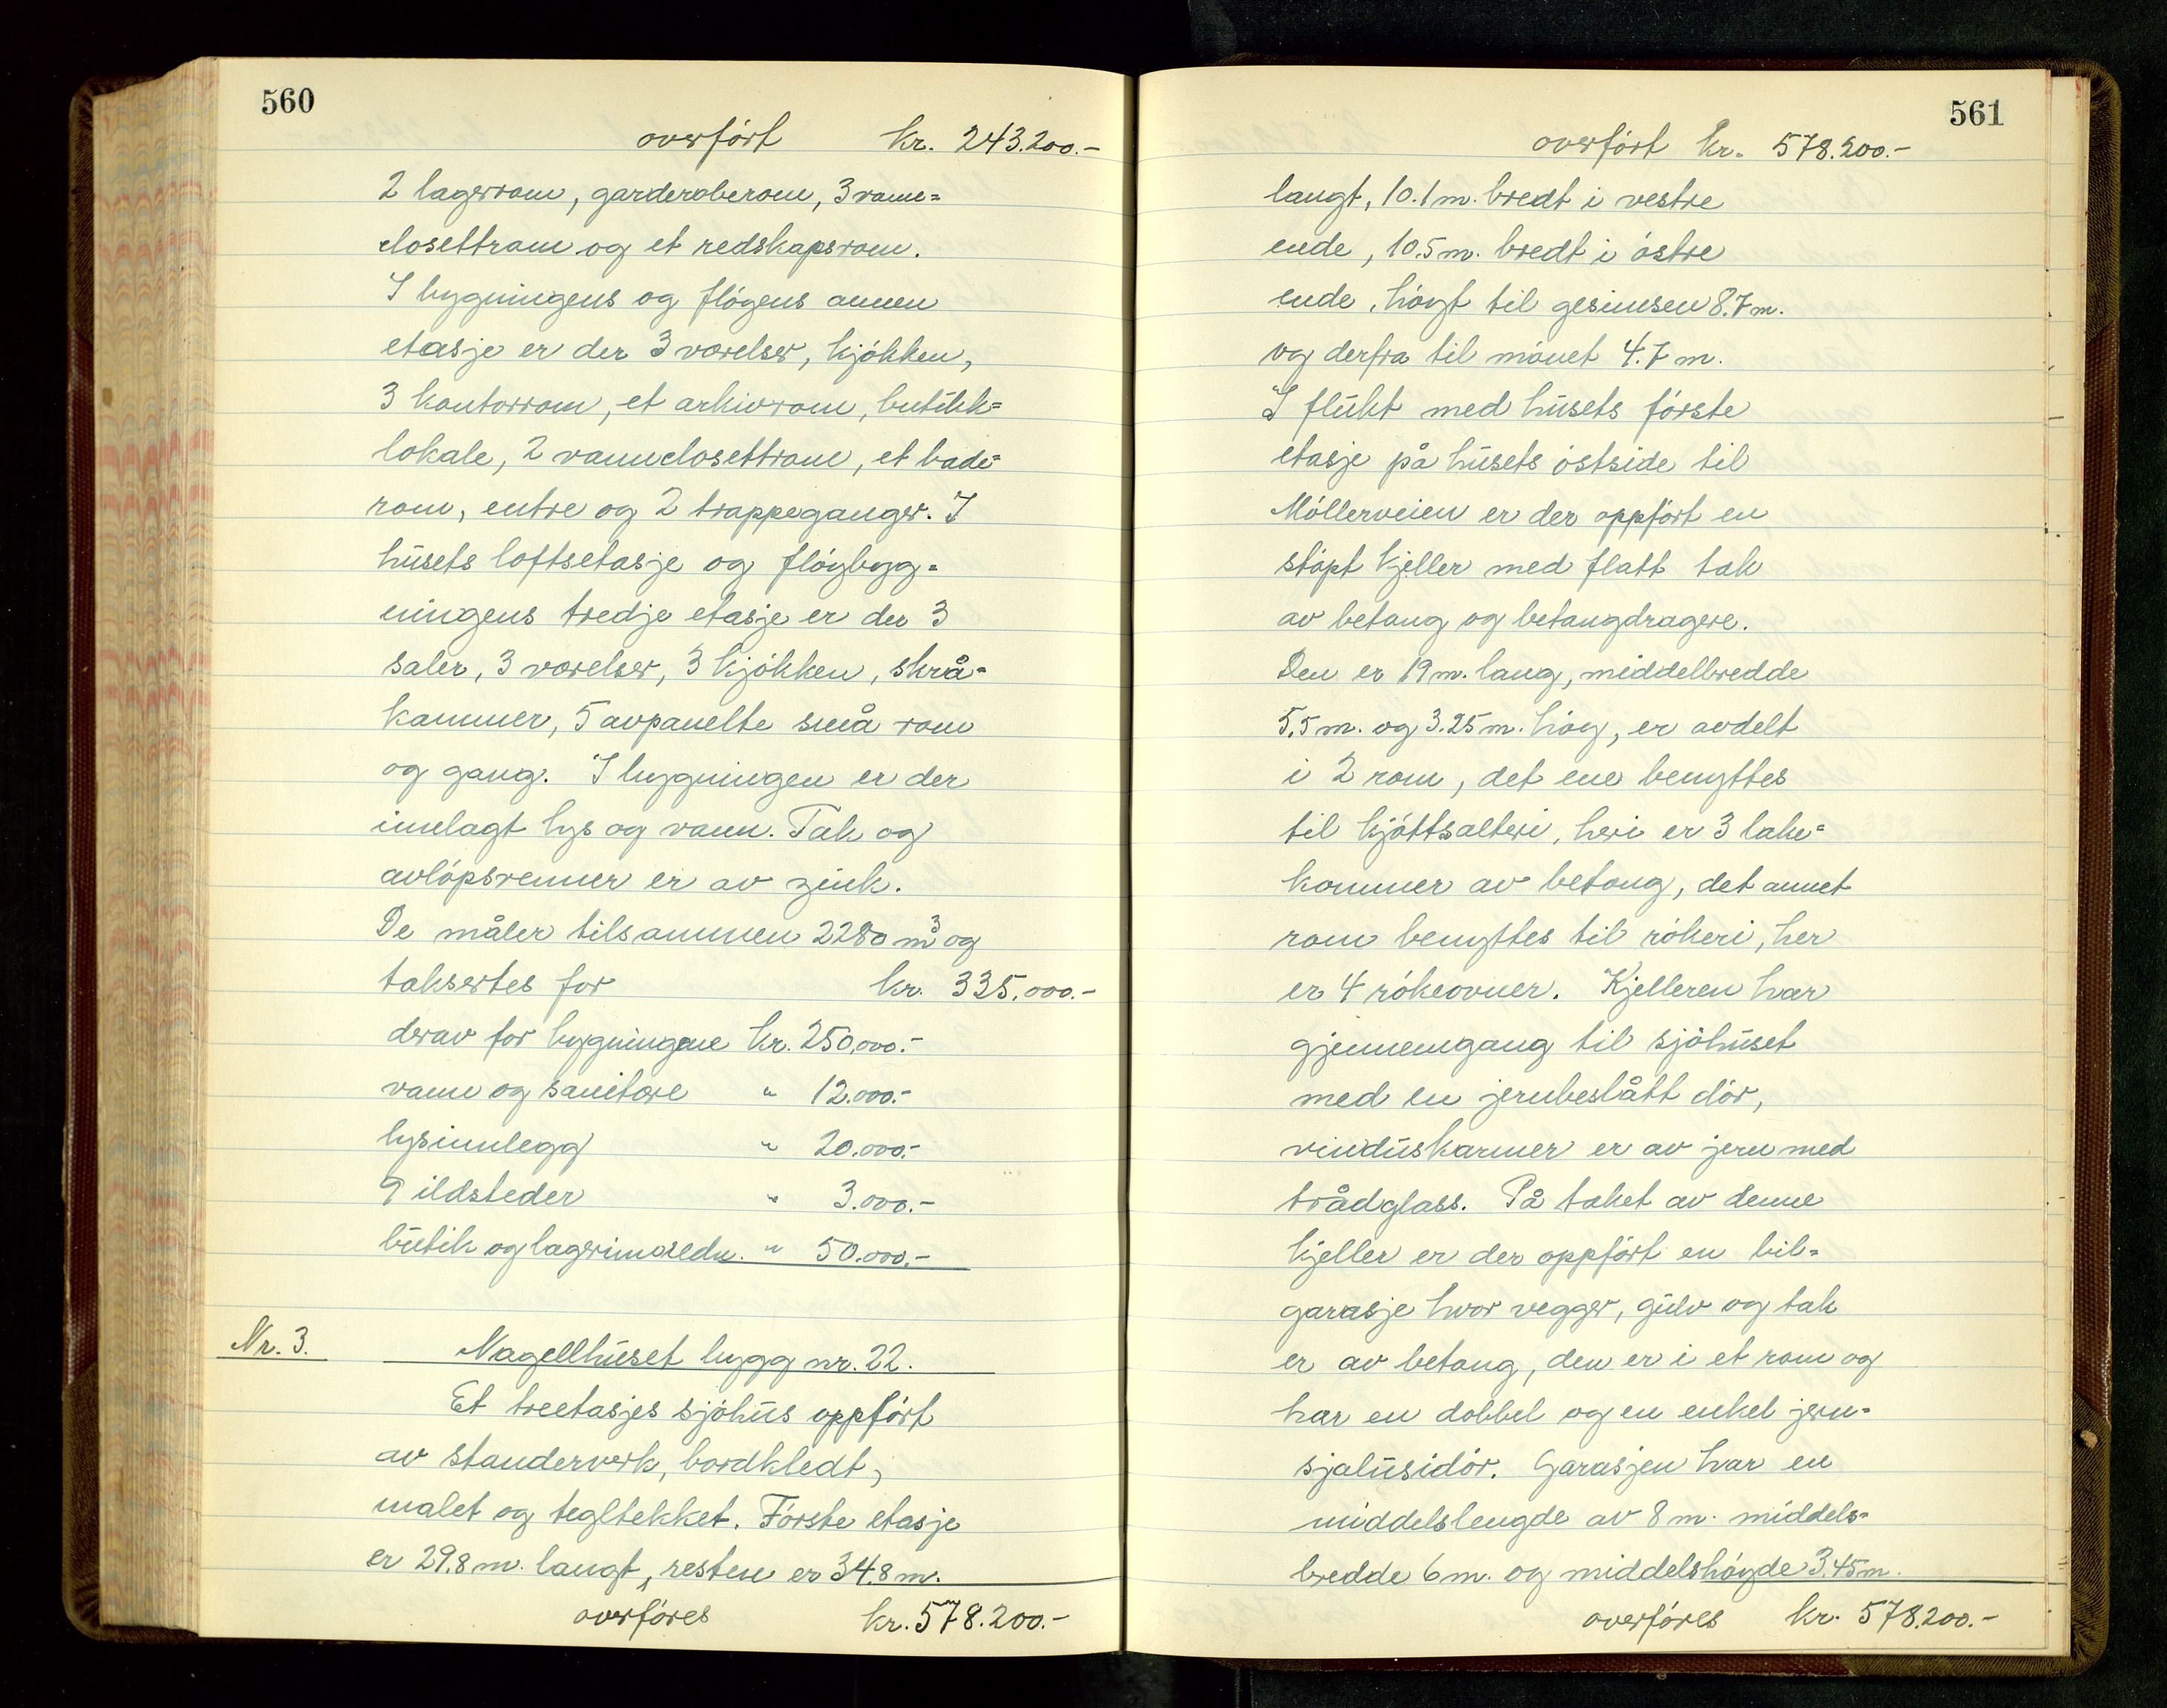 560
overført kr. 243.200.-
2 lagerrom, garderoberom, 3 vann=
closettrom og et redskapsrom.
I bygningens og fløgens annen
etasje er der 3 værelser, kjøkken,
3 kontorrom, et arkivrom, butikk=
lokale, 2 vannclosettrom, et bade=
rom, entre og 2 trappeganger. I
husets loftsetasje og fløybygg=
ningens tredje etasje er der 3
saler, 3 værelser, 3 kjøkken, skrå=
kammer, 5 avpanelte små rom
og gang. I bygningen er der
innlagt lys og vann. Tak og
avløpsrenner er av zink.
De måler tilsammen 2280 m³ og
taksertes for kr. 335.000.-
derav for bygningene kr. 250.000.-
vann og sanitære " 12.000.-
lysinnlegg " 20.000.-
9 ildsteder " 3.000.-
butik og lagerinnredn. " 50.000.-
Nr. 3. Nagellhuset bygg nr. 22.
Et treetasjes sjøhus oppført
av standerverk, bordkledt,
malet og tegltekket. Første etasje
er 29.8 m. langt, resten er 34.8 m.
overføres kr. 578.200.-
561
overført kr. 578.200.-
langt, 10.1 m. bredt i vestre
ende, 10.5 m. bredt i østre
ende, høyt til gesimsen 8.7 m.
og derfra til mønet 4.7 m.
I flukt med husets første
etasje på husets østside til
Møllerveien er der oppført en
støpt kjeller med flatt tak
av betong og betongdragere.
Den er 19 m. lang, middelbredde
5.5 m. og 3.25 m. høy, er avdelt
i 2 rom, det ene benyttes
til kjøttsalteri, heri er 3 lake=
kommer av betong, det annet
rom benyttes til røkeri, her
er 4 røkeovner. Kjelleren har
gjennemgang til sjøhuset
med en jernbeslått dør,
vinduskarmer er av jern med
trådglass. På taket av denne
kjeller er der oppført en bil=
garasje hvor vegger, gulv og tak
er av betong, den er i et rom og
har en dobbel og en enkel jern=
sjalusidør. Garasjen har en
middelslengde av 8 m. middels=
bredde 6 m. og middelshøyde 3.45 m.
overføres kr. 578.200.-